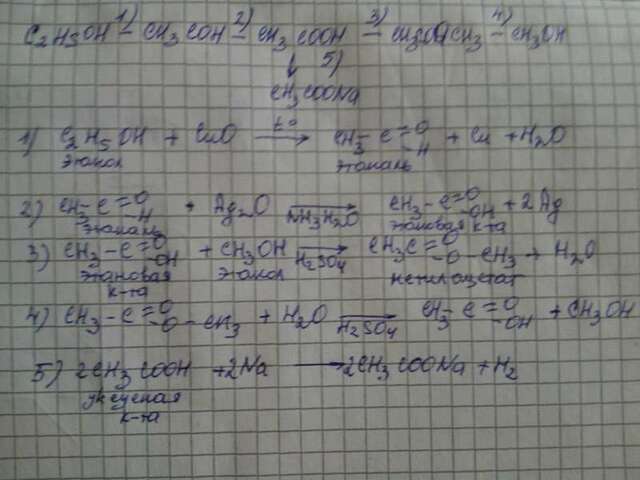 1) 2) 3) 4)
C₂H₅OH – CH₃COH – CH₃COOH – – CH₃OH
↓ 5)
CH₃COONa
1) C₂H₅OH + CuO →(t°) CH₃–C(=O)–H + Cu + H₂O
этанол этаналь
2) CH₃–C(=O)–H + Ag₂O →(NH₃H₂O) CH₃–C(=O)–OH + 2Ag
этаналь этановая к-та
3) CH₃–C(=O)–OH + CH₃OH →(H₂SO₄) CH₃C(=O)–O–CH₃ + H₂O
этановая этанол
к-та
4) CH₃–C(=O)–O–CH₃ + H₂O →(H₂SO₄) CH₃–C(=O)–OH + CH₃OH
5) 2CH₃COOH + 2Na → 2CH₃COONa + H₂
уксусная
к-та